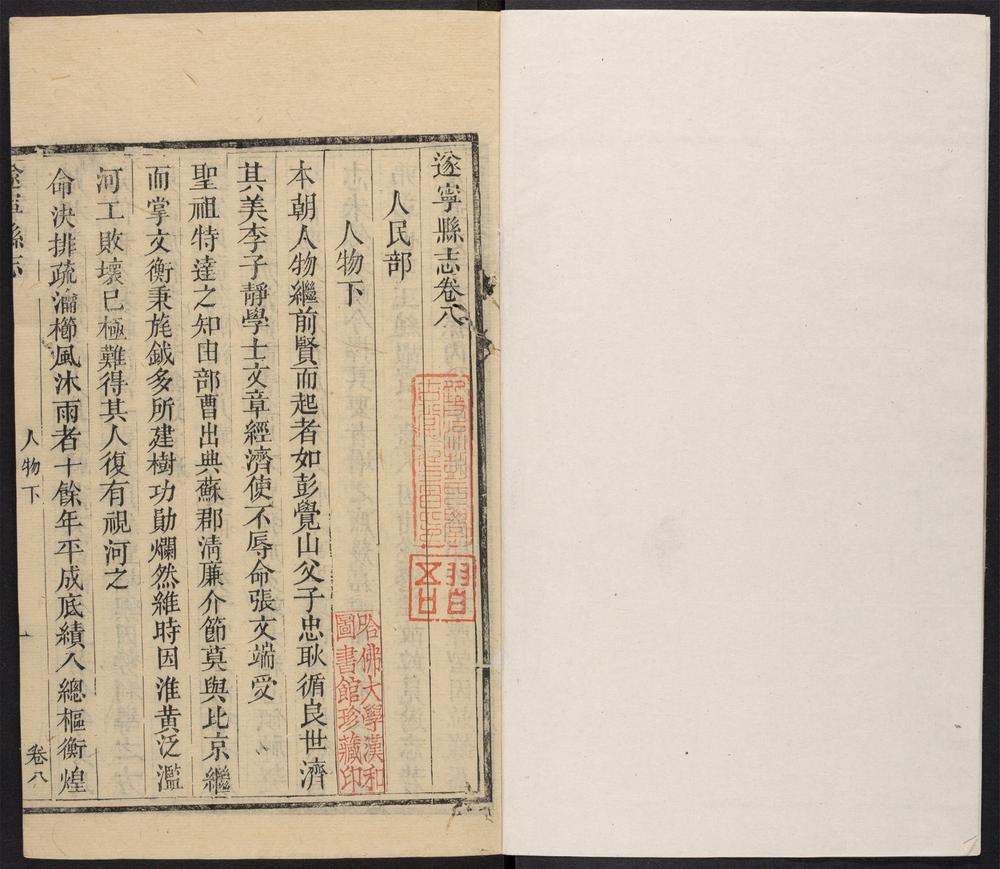 遂寧縣志卷八
人民部
人物下
本朝人物繼前賢而起者如彭覺山父子忠耿循良世濟
其美李子靜學士文章經濟使不辱命張文端受
聖祖特達之知由部曹出典蘇郡清廉介節莫與比京繼
而掌文衡秉旄鉞多所建樹功勛爛然維時因淮黄泛濫
河工敗壞已極難得其人復有視河之
命決排疏瀹櫛風沐雨者十餘年平成底績入總樞衡煌
遂寧縣志
人物下
卷八
哈佛大學漢和
圖書館珍藏印